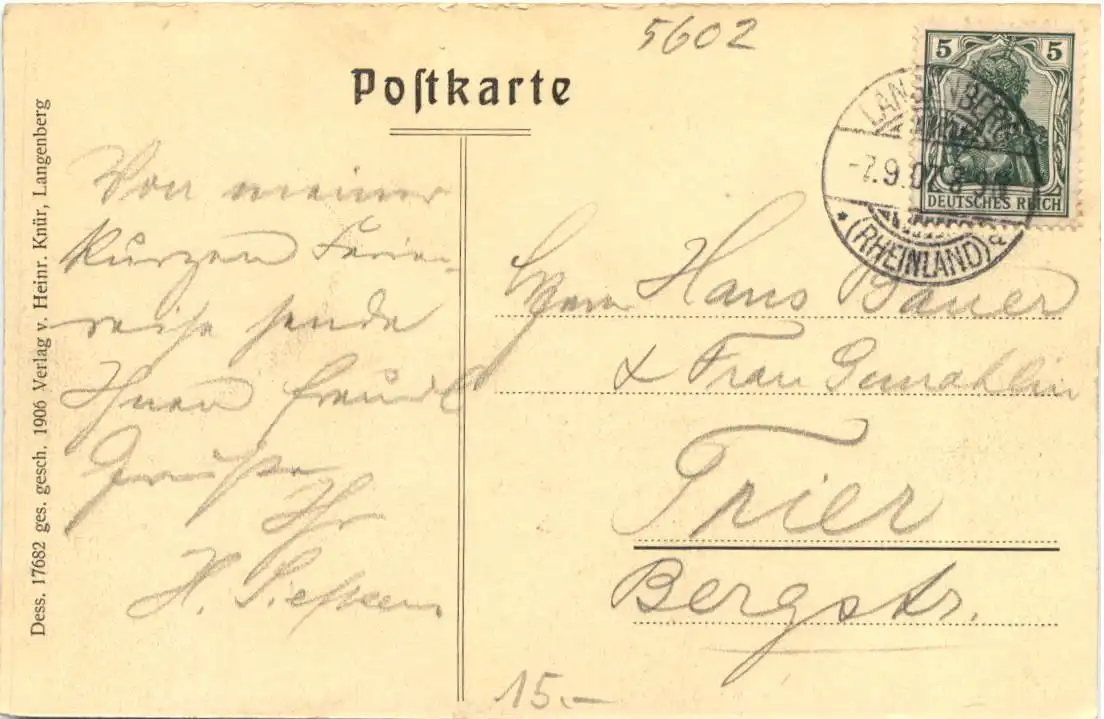 5602
Poſtkarte
5 5
DEUTSCHES REICH
LANGENBERG
-7.9.07. 8-9N
* (RHEINLAND) a
Dess. 17682 ges. gesch. 1906 Verlag v. Heinr. Knür, Langenberg
Von meiner
kurzen Ferien-
reise sende
Ihnen freundl
Grüsse
Ihr
H.
Herrn Hans Bauer
& Frau Gemahlin
Trier
Bergstr.
15.-